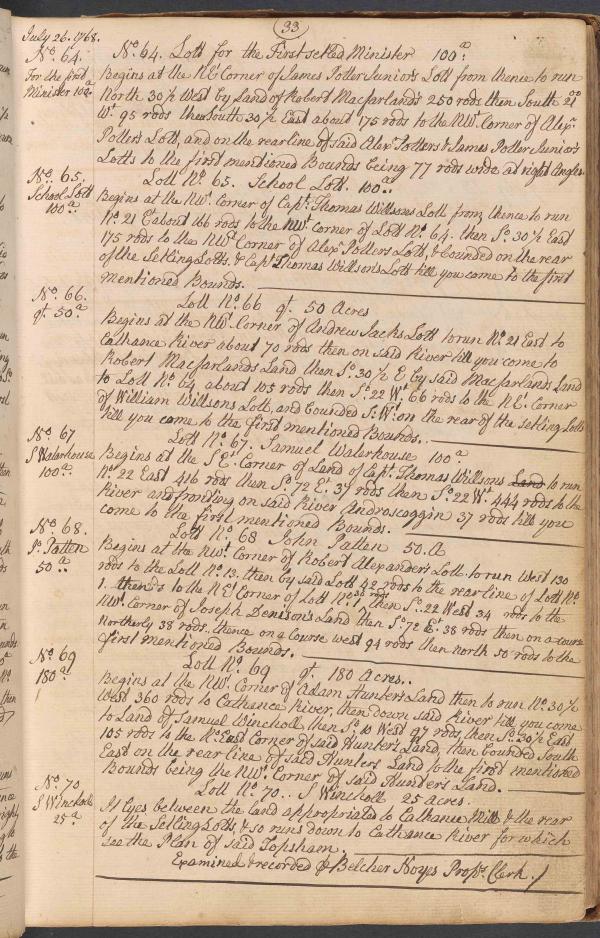 33
July 26. 1768.
No. 64. No. 64. Lott for the First setled Minister 100.a
For the first Begins at the NEt Corner of James Potter Junior's Lott from thence to run
Minister 100a North 30½ West by Land of Robert Macfarland's 250 rods then South 21
Wt. 95 rods then South 30½ East about 175 rods to the NWt. Corner of Alexr.
Potters Lott, and on the rear line of said Alexr. Potters & James Potter Junior's
Lotts to the first mentioned Bounds being 77 rods wide at right Angles.
No. 65. Lott No. 65. School Lott. 100..
School Lott Begins at the NWt. Corner of Capt. Thomas Willsons Lott from thence to run
100a.. No. 21 E about 166 rods to the NWt Corner of Lott No. 64. then So. 30½ East
175 rods to the NWt Corner of Alexr Potters Lott, & bounded on the rear
of the Setling Lotts, & Capt. Thomas Willson's Lott till you come to the first
mentioned Bounds.
No. 66. Lott No. 66 qt. 50 Acres
qt. 50.a Begins at the NWt. Corner of Andrew Jacks Lott to run No. 21 East to
Cathance River about 70 rods then on said River till you come to
Robert Macfarlands Land then So. 30½ E by said Macfarlands Land
to Lott No. 64 about 105 rods then So. 22 W. 66 rods to the NEt. Corner
of William Willsons Lott, and bounded So. Wt. on the rear of the setling Lotts
till you come to the first mentioned Bounds..
No. 67 Lott No. 67. Samuel Waterhouse 100a
S Waterhouse Begins at the SEt. Corner of Land of Capt. Thomas Willsons Land to run
100a.. No. 22 East 416 rods then So. 72 Et. 37 rods then So. 22 Wt. 444 rods to the
River and fronting on said River Androscoggin 37 rods till you
come to the first mentioned Bounds.
No. 68. Lott No. 68 John Patten 50.a
Jo. Patten Begins at the NWt. Corner of Robert Alexander's Lott to run West 130
50a.. rods to the Lott No. 13. then by said Lott 42 rods to the rear line of Lott No.
1. then 36 rods to the NEt Corner of Lott No. 1, then So. 22 West 34 rods to the
NWt. Corner of Joseph Denison's Land then So. 72 Et. 38 rods then on a course
Northerly 38 rods.. thence on a Course west 94 rods then north 50 rods to the
first mentioned Bounds.
No. 69 Lott No. 69 qt. 180 Acres..
180a. Begins at the NWt. Corner of Adam Hunters Land then to run No. 30½
West 360 rods to Cathance River, then down said River till you come
to Land of Samuel Wincholl then So. 10 West 97 rods, then So. 30½ East
105 rods to the No. East Corner of said Hunter's Land, then bounded South
East on the rear line of said Hunters Land to the first mentioned
Bounds being the NWt. Corner of said Hunters Land.
No. 70 Lott No. 70.. S Wincholl 25 Acres.
S Wincholl It lyes between the Land appropriated to Cathance Mill & the rear
25a of the Setling Lotts, & so runs down to Cathance River for which
see the Plan of said Topsham.
Examined & recorded p Belcher Noyes Props. Clerk.